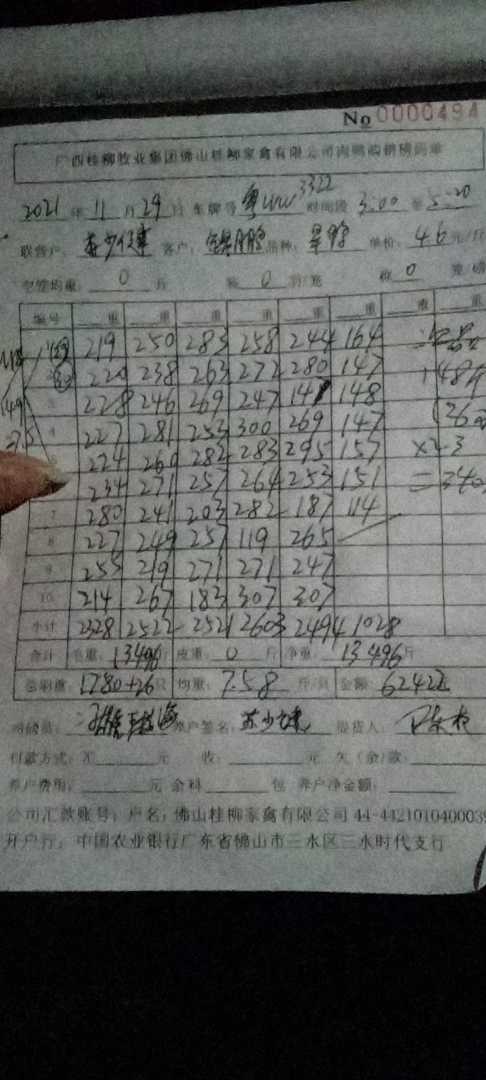 No 0000494
广西桂柳牧业集团佛山桂柳家禽有限公司肉鸭购销磅码单
2021 年 11 月 29 日 车牌号 粤 3322 时间段 3:00 至 5:20
联营户: 客户: 品种: 单价: 4.6 元/斤
空笼均重: 0 斤 0 0
编号 重 重 重 重 重 重 重 重
219 250 283 258 244 164
220 238 263 272 280 147
228 246 269 247 148
4 227 281 253 300 269 147
224 260 282 283 295 157 ×23
234 271 257 264 253 151
7 280 241 203 282 187 114
8 227 249 257 119 265
9 255 219 271 271 247
10 214 267 183 307 307
小计 2328 2522 2521 2603 2494 1028
合计 毛重: 13496 皮重: 0 斤 净重: 13496 斤
总羽重: 1780+26 只 均重: 7.58 斤/只 金额: 62422
司磅员: 养户签名: 提货人:
付款方式: 汇 元 收: 元 欠(余)款:
养户费用: 元 余料 包 养户净金额:
公司汇款账号: 户名: 佛山桂柳家禽有限公司 44-4421010400039
开户行: 中国农业银行广东省佛山市三水区三水时代支行